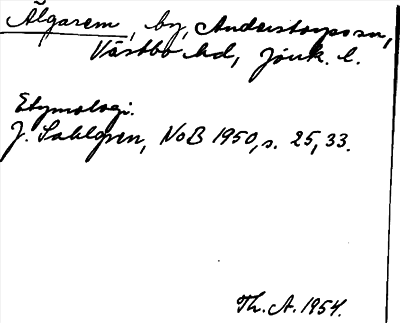 Älgarem, by, Anderstorps sn,
Västbo hd, Jönk. l.
Etymologi.
J. Sahlgren, NoB 1950, s. 25, 33.
Th. A. 1954.